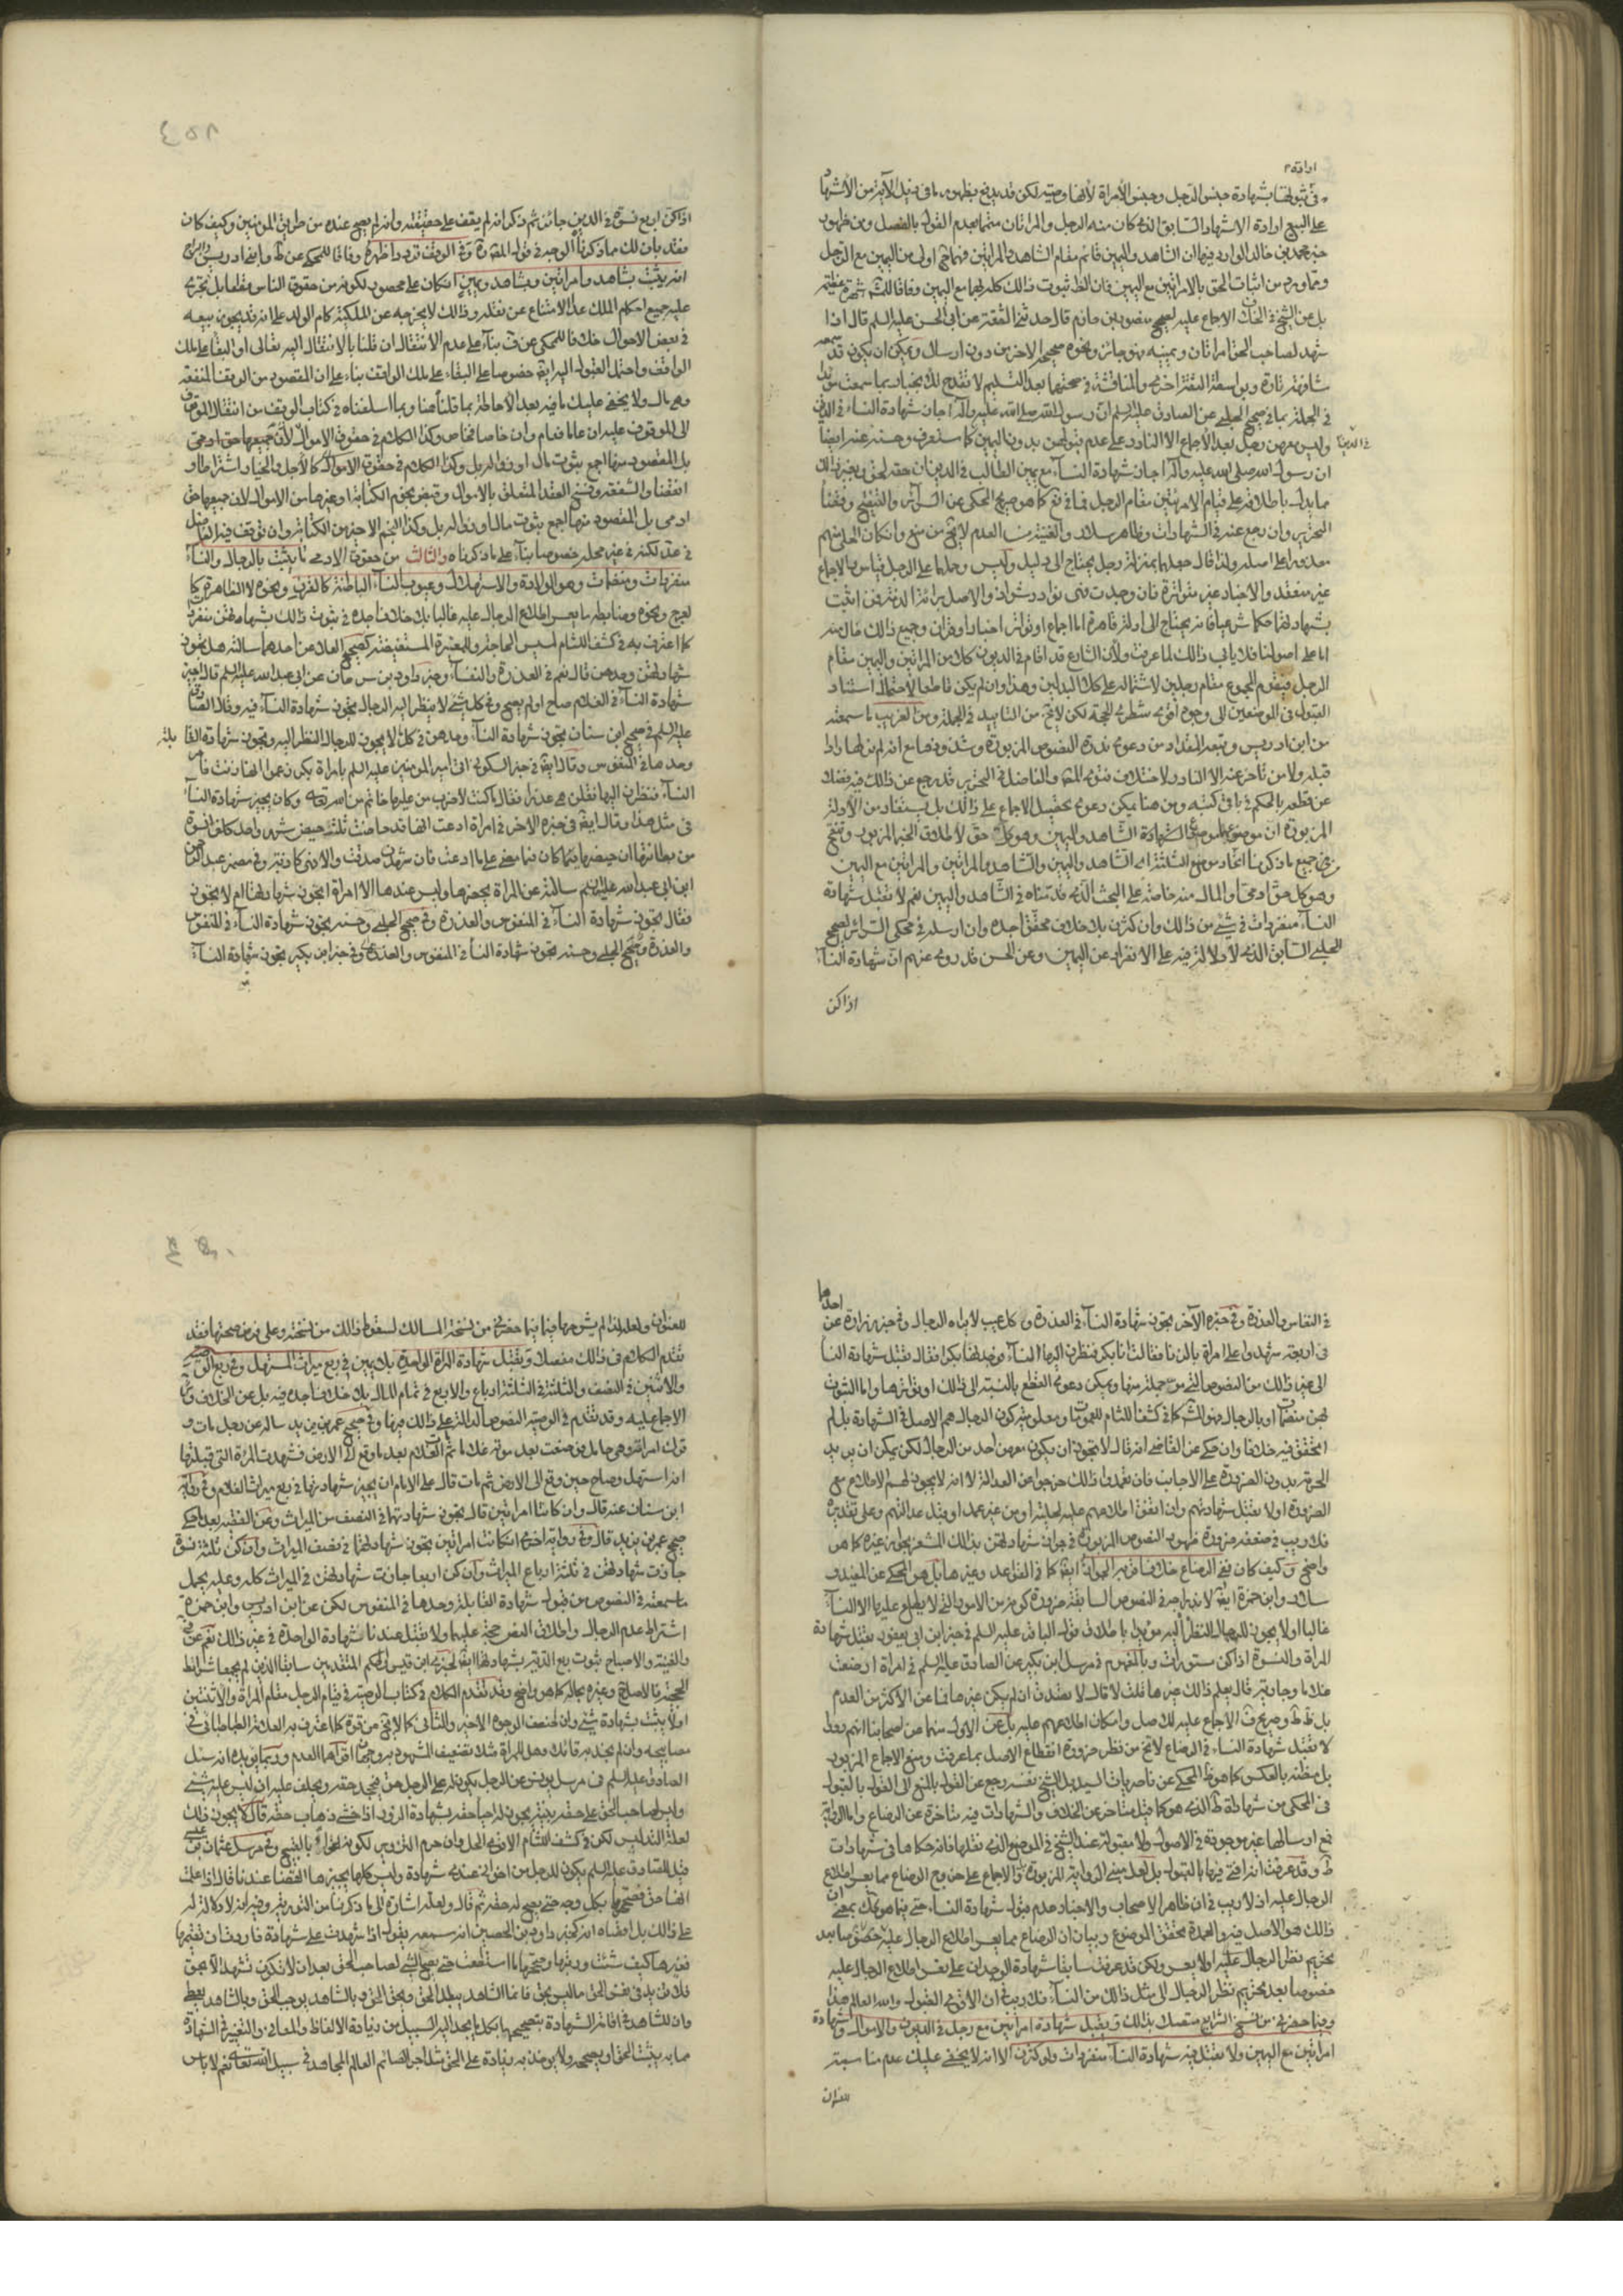 في ثبوتها بشهادة جنس الرجل وجنس الامراة لكن قد يدفع بظهور ما في ذيل الآية من الاشهاد
على البيع ارادة الاشهاد السابق الذي كان منه الرجل والمراتان
خبر محمد بن خالد الوارد فيه ان الشاهد واليمين قائم مقام الشاهد والمراتين فهما اولى من اليمين مع الرجل
ومما ورد من اثبات الحق بالامراتين مع اليمين فان الظ ثبوت ذلك كله بهما مع اليمين وفاقا للشهرة عظيمة
بل عن الشيخ في الخلاف الاجماع عليه لصحيح منصور بن حازم قال حدثني الثقة عن ابي الحسن عليه السلم قال اذا
شهد لصاحب الحق امراتان ويمينه فهو جائز ونحوه صحيحه الاخر من دون ارسال ويمكن ان يكون قد سمعه
شافهة تارة وبواسطة الثقة اخرى والمناقشة في صحتهما بعد التسليم لا تقدح
في الجملة بما في صحيح الحلبي عن الصادق عليه السلم ان رسول الله صلى الله عليه وآله اجاز شهادة النساء في الدين
وليس معهن رجل بعد الاجماع الا النادر على عدم قبولهن بدون اليمين كما ستعرف وحسنه عنه ايضا
ان رسول الله صلى الله عليه وآله اجاز شهادة النساء مع يمين الطالب في الدين ان حقه لحق وبغير ذلك
مما يدل باطلاقه على قيام الامراتين مقام الرجل فما في فع كما هو صريح المحكي عن السرائر والتنقيح وقضاء
التحرير وان رجع عنه في الشهادات وظاهر سلار والغنية من العدم لا يخ من منع وان كان الحلي منهم
معذورا على اصله ولذا قال جعلهما بمنزلة رجل يحتاج الى دليل وليس وحملهما على الرجل قياس والاجماع
غير منعقد والاخبار غير متواترة فان وجدت فهي نوادر شواذ والاصل براءة الذمة فمن اثبت
بشهادتهما حكما شرعيا فانه يحتاج الى ادلة قاهرة اما اجماع او تواتر اخبار او قرآن وجميع ذلك خال منه
اما على اصولنا فلا ياب ذلك لما عرفت ولان الشارع قد اقام في الديون كلا من المراتين واليمين مقام
الرجل فيقوم المجموع مقام رجلين لاشتماله على كلا البدلين وهذا وان لم يكن قاطعا لاحتمال استناد
القبول في الموضعين الى وجود اقوى شطري الحجة لكن لا يخ من التاييد في الجملة ومن الغريب ما سمعته
من ابن ادريس وتبعه المقداد من دعوى ندرة النصوص المزبورة وشذوذها مع انه لم نر لها رادا
قبله ولا من تاخر عنه الا النادر ولاختلاف فتوى المص والفاضل في التحرير قد رجع عن ذلك فيه فضلا
عن قطعه بالحكم في باقي كتبه ومن هنا يمكن دعوى تحصيل الاجماع على ذلك بل يستفاد من الادلة
المزبورة ان موضوعها موضوع الشهادة الشاهد واليمين وهو كل حق لاطلاق الخبر المزبور وتنقح
من جميع ما ذكرنا اتحاد موضوع الثلاثة اي الشاهد واليمين والشاهد والمراتين والمراتين مع اليمين
وهو كل حق ادمي او المال منه خاصة على البحث الذي قدمناه في الشاهد واليمين نعم لا تقبل شهادة
النساء منفردات في شيء من ذلك وان كثرن بلا خلاف محقق اجده وان ارسله في محكي السرائر لصحيح
الحلبي السابق الذي لا دلالة فيه على الانفراد عن اليمين وعن الحسن قد روى عنهم ان شهادة النساء
اذا كن
اذا كن اربع نسوة في الدين جائز ثم ذكر انه لم يقف على حقيقته وانه لم يصح عنده من طريق المومنين وكيف كان
فقد بان لك مما ذكرنا الوجه في قول المص وفي الوقف تردد اظهره وفاقا للمحكي عن ط وابني ادريس والبراج
انه يثبت بشاهد وامراتين وبشاهد ويمين ان كان على محصور لكونه من حقوق الناس قطعا بل تجري
عليه جميع احكام الملك عدا الامتناع عن نقله وذلك لا يخرجه عن الملكية كام الولد على انه قد يجوز بيعه
في بعض الاحوال خلافا للمحكي عن ف بناء على عدم الانتقال ان قلنا بالانتقال اليه تعالى او البقاء على ملك
الواقف واحتمل القبول اليه ايضا خصوصا على البقاء على ملك الواقف بناء على ان المقصود من الوقف المنفعة
وهي مال ولا يخفى عليك ما فيه بعد الاحاطة بما قلناه هنا وبما اسلفناه في كتاب الوقف من انتقال الموقوف
الى الموقوف عليه ان عاما فعام وان خاصا فخاص وكذا الكلام في حقوق الاموال لان جميعها حق ادمي
بل المقصود منها اجمع ثبوت مال او زواله بل وكذا الكلام في حقوق الاموال كالاجل والخيار اشتراطا او
اقتضاء والشفعة وفسخ العقد المتعلق بالاموال وقبض نجوم الكتابة او غيرها من الاموال لان جميعها حق
ادمي بل المقصود منها اجمع ثبوت مال او زواله بل وكذا النجم الاخير من الكتابة وان توقف فيه الفاضل
في عد لكنه في غير محله خصوصا بناء على ما ذكرناه والثالث من حقوق الادمي ما يثبت بالرجال والنساء
منفردات ومنضمات وهو الولادة والاستهلال وعيوب النساء الباطنة كالقرن ونحوه لا الظاهرة كا
لعرج ونحوه وضابطه ما يعسر اطلاع الرجال عليه غالبا بلا خلاف اجده في ثبوت ذلك بشهادتهن منفردات
كما اعترف به في كشف اللثام لمسيس الحاجة وللمعتبرة المستفيضة كصحيح العلاء عن احدهما سالته هل تجوز
شهادتهن وحدهن قال نعم في العذرة والنفساء وخبر داود بن سرحان عن ابي عبد الله عليه السلم قال اجيز
شهادة النساء في الغلام صاح او لم يصح وفي كل شيء لا ينظر اليه الرجال تجوز شهادة النساء فيه وقال الصادق
عليه السلم في صحيح ابن سنان تجوز شهادة النساء وحدهن في كل ما لا يجوز للرجال النظر اليه وتجوز شهادة القابلة
وحدها في المنفوس وقال ايضا في خبر السكوني اتي امير المومنين عليه السلم بامراة بكر زعموا انها زنت فامر
النساء فنظرن اليها فقلن هي عذراء فقال ما كنت لاضرب من عليها خاتم من الله تعالى وكان يجيز شهادة النساء
في مثل هذا وقال ايضا في خبره الاخر في امراة ادعت انها قد حاضت ثلثة حيض في شهر واحد كلفوا نسوة
من بطانتها ان حيضها فيما كان فيما مضى على ما ادعت فان شهدن صدقت والا فهي كاذبة وفي مضمر عبد الرحمن
ابن ابي عبد الله سالته عن المراة يحضرها وليس عندها الا امراة اتجوز شهادتها ام لا تجوز
فقال تجوز شهادة النساء في المنفوس والعذرة وفي صحيح الحلبي وحسنه تجوز شهادة النساء في المنفوس
والعذرة وفي صحيح الحلبي وحسنه تجوز شهادة النساء في المنفوس والعذرة وفي خبر ابن بكير تجوز شهادة النساء
في النفاس والعذرة وفي خبره الآخر تجوز شهادة النساء في العذرة وكل عيب لا يراه الرجال وفي خبر زرارة عن احدهما
في اربعة شهدوا على امراة بالزنا فقالت انا بكر فنظرن اليها النساء فوجدنها بكرا فقال تقبل شهادة النساء
الى غير ذلك من النصوص التي مر جملة منها ويمكن دعوى القطع بالنسبة الى ذلك او تواترها واما الثبوت
بهن منضمات او بالرجال فهو الظ كما في كشف اللثام للعموم ومعلومية كون الرجال هم الاصل في الشهادة بل لم
اتحقق فيه خلافا وان حكى عن القاضي انه قال لا يجوز ان يكون معهن احد من الرجال لكن يمكن ان يريد
الحرمة بدون الضرورة على الاجانب فان تعمدوا ذلك خرجوا عن العدالة لا انه لا يجوز لهم الاطلاع مع
الضرورة او لا تقبل شهادتهم وان اتفق اطلاعهم عليه لحلية او من غير عمد او قبل عدالتهم وعلى تقديره
فلا ريب في ضعفه ضرورة ظهور النصوص المزبورة في جواز شهادتهن بذلك المشعر بجواز غيره كما هو
واضح وكيف كان ففي الرضاع خلاف اقربه الجواز ايضا كما في القواعد وغيرها بل هو المحكي عن المفيد و
سلار وابن حمزة ايضا لاندراجه في النصوص السابقة ضرورة كونه من الامور التي لا يطلع عليها الا النساء
غالبا او لا يجوز للرجال النظر اليه مؤيدا باطلاق قول الباقر عليه السلم في خبر ابن ابي يعفور تقبل شهادة
المراة والنسوة اذا كن مستورات وبالمفهوم في مرسل ابن بكير عن الصادق عليه السلم في امراة ارضعت
غلاما وجارية قال يعلم ذلك غيرها قلت لا قال لا تصدق ان لم يكن غيرها فما عن الاكثر من العدم
بل ظ ط وصريح ف الاجماع عليه للاصل وامكان اطلاعهم عليه بل عن الاول منهما عن اصحابنا انهم رووا
لا تقبل شهادة النساء في الرضاع لا يخ من نظر ضرورة انقطاع الاصل بما عرفت ومنع الاجماع المزبور
بل مظنة بالعكس كما هو ظ المحكي عن ناصريات السيد بل الشيخ نفسه رجع عن القول بالمنع الى القول بالقبول
في المحكي من شهادة ط الذي هو كما قيل متاخر عن الخلاف والشهادات فيه متاخرة عن الرضاع واما الرواية
فمع ارسالها غير موجودة في الاصول ولا مقبولة عند الشيخ في الموضع الذي نقلها فانه حكاها في شهادات
ط وقد عرفت انه افتى فيها بالقبول بل لعل مبنى الرواية المزبورة والاجماع على خروج الرضاع مما يعسر اطلاع
الرجال عليه اذ لا ريب في ان ظاهر الاصحاب والاخبار عدم قبول شهادة النساء حتى فيما هو شك بمعنى ان
ذلك هو الاصل فيه والعمدة تحقق الموضوع وبيان ان الرضاع مما يعسر اطلاع الرجال عليه خصوصا بعد
تحريم نظر الرجال عليه او لا يعسر ولكن قد عرفت سابقا شهادة الوجدان على تعسر اطلاع الرجال عليه
خصوصا بعد تحريم نظر الرجال الى مثل ذلك من النساء فلا ريب في ان الاقوى القبول والله العالم هذا
وفيما حضرني من نسخ الشرايع متصلا بذلك وتقبل شهادة امراتين مع رجل في الديون والاموال وشهادة
امراتين مع اليمين ولا تقبل فيه شهادة النساء منفردات ولو كثرن الا انه لا يخفى عليك عدم مناسبته
للعنوان
للعنوان ولعله لذا لم يشرحها فيما حضرني من نسخة المسالك لسقوط ذلك من نسخته وعلى فرض صحتها فقد
تقدم الكلام في ذلك مفصلا وتقبل شهادة المراة الواحدة بلا يمين في ربع ميراث المستهل وفي ربع الوصية
والاثنين في النصف والثلثة في الثلثة ارباع والاربع في تمام المال بلا خلاف اجده فيه بل عن الخلاف
الاجماع عليه وقد تقدم في الوصية النصوص الدالة على ذلك فيها وفي صحيح عمر بن يزيد ساله عن رجل مات و
ترك امراته وهي حامل فوضعت بعد موته غلاما ثم مات الغلام بعد ما وقع الى الارض فشهدت المراة التي قبلتها
انه استهل وصاح حين وقع الى الارض ثم مات قال على الامام ان يجيز شهادتها في ربع ميراث الغلام وفي رواية
ابن سنان عنه قال وان كانتا امراتين قال تجوز شهادتهما في النصف من الميراث وعن الفقيه بعد ان حكى
صحيح عمر بن يزيد قال وفي رواية اخرى ان كانت امراتين تجوز شهادتهما في نصف الميراث وان كن ثلثة نسوة
جازت شهادتهن في ثلثة ارباع الميراث وان كن اربعا جازت شهادتهن في الميراث كله وعليه يحمل
ما سمعته في النصوص من قبول شهادة القابلة وحدها في المنفوس لكن عن ابن ادريس وابن حمزة
اشتراط عدم الرجال واطلاق النص حجة عليهما ولا تقبل عندنا شهادة الواحدة في غير ذلك نعم عن
والغنية والاصباح ثبوت ربع الدية بشهادتها ايضا لخبري ابن قيس والحكم المتقدمين سابقا الذين لم يجمعا شرائط
الحجية فالاصل وغيره بحاله كما هو واضح وقد تقدم الكلام في كتاب الوصية في قيام الرجل مقام المراة والاثنتين
او لا يثبت بشهادة شيء وان اضعف الوجوه الاخير والثاني كما لا يخ من قوة كما اعترف به العلامة الطباطبائي في
مصابيحه وان لم نجد به قائلا وهل للمراة مثلا تضعيف المشهود به وجهان اقواهما العدم وربما يؤيده انه سئل
الصادق عليه السلم في مرسل يونس عن الرجل يكون له على الرجل حق فيجحد حقه ويحلف عليه ان ليس عليه شيء
وليس لصاحب الحق على حقه بينة يجوز له احياء حقه بشهادة الزور اذا خشي ذهاب حقه قال لا يجوز ذلك
لعلة التدليس لكن في كشف اللثام الاقوى الحل وان حرم التزوير لكونه اغراء بالقبيح وفي مرسل عثمان بن عيسى
قيل للصادق عليه السلم يكون للرجل من اخواني عندي شهادة وليس كلها يجيزها القضاة عندنا قال اذا علمت
انها حق فصححها بكل وجه حتى يصح له حقه ثم قال ولعله اشارة الى ما ذكرنا من التورية وفيه انه لا دلالة له
على ذلك بل اقصاه انه كخبر داود بن الحصين انه سمعه يقول اذا شهدت على شهادة فاردت ان تقيمها
فغيرها كيف شئت ورتبها وصححها ما استطعت حتى يصح الشيء لصاحب الحق بعد ان لا تكون تشهد الا بحق
فلا تزيد في نفس الحق ما ليس بحق فانما الشاهد يبطل الحق ويحق الحق وبالشاهد يوجب الحق وبالشاهد يعطى
وان للشاهد في اقامة الشهادة بتصحيحها بكل ما يجد اليه السبيل من زيادة الالفاظ والمعاني والتغيير في الشهادة
مما به يثبت الحق ويصححه ولا يؤخذ به زيادة على الحق مثل اجر الصائم القائم المجاهد في سبيل الله تعالى نعم لا باس